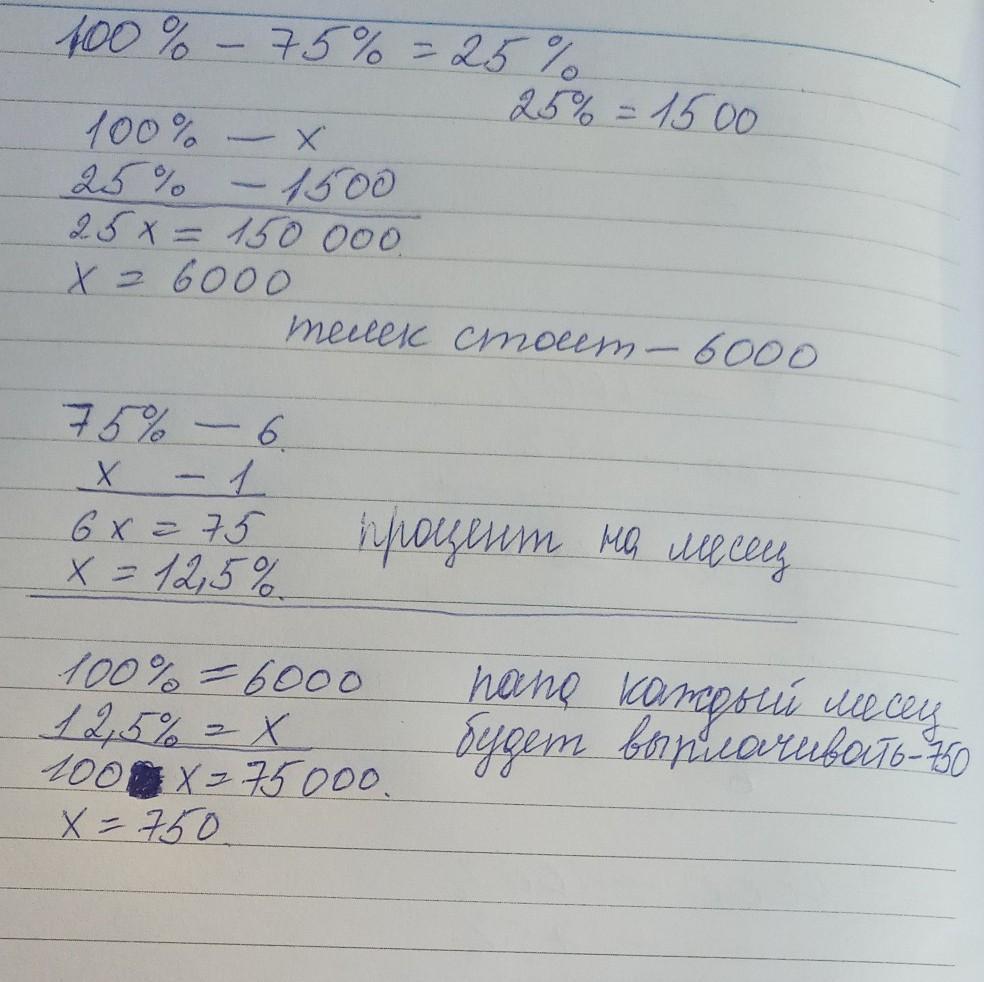 100% - 75% = 25%
25% = 1500
100% - x
25% - 1500
25x = 150 000
x = 6000
телек стоит - 6000
75% - 6
x - 1
6x = 75
процент на месец
x = 12,5%
100% = 6000
папа каждый месец
12,5% = x
будет выплачивать-750
100 x = 75000.
x = 750